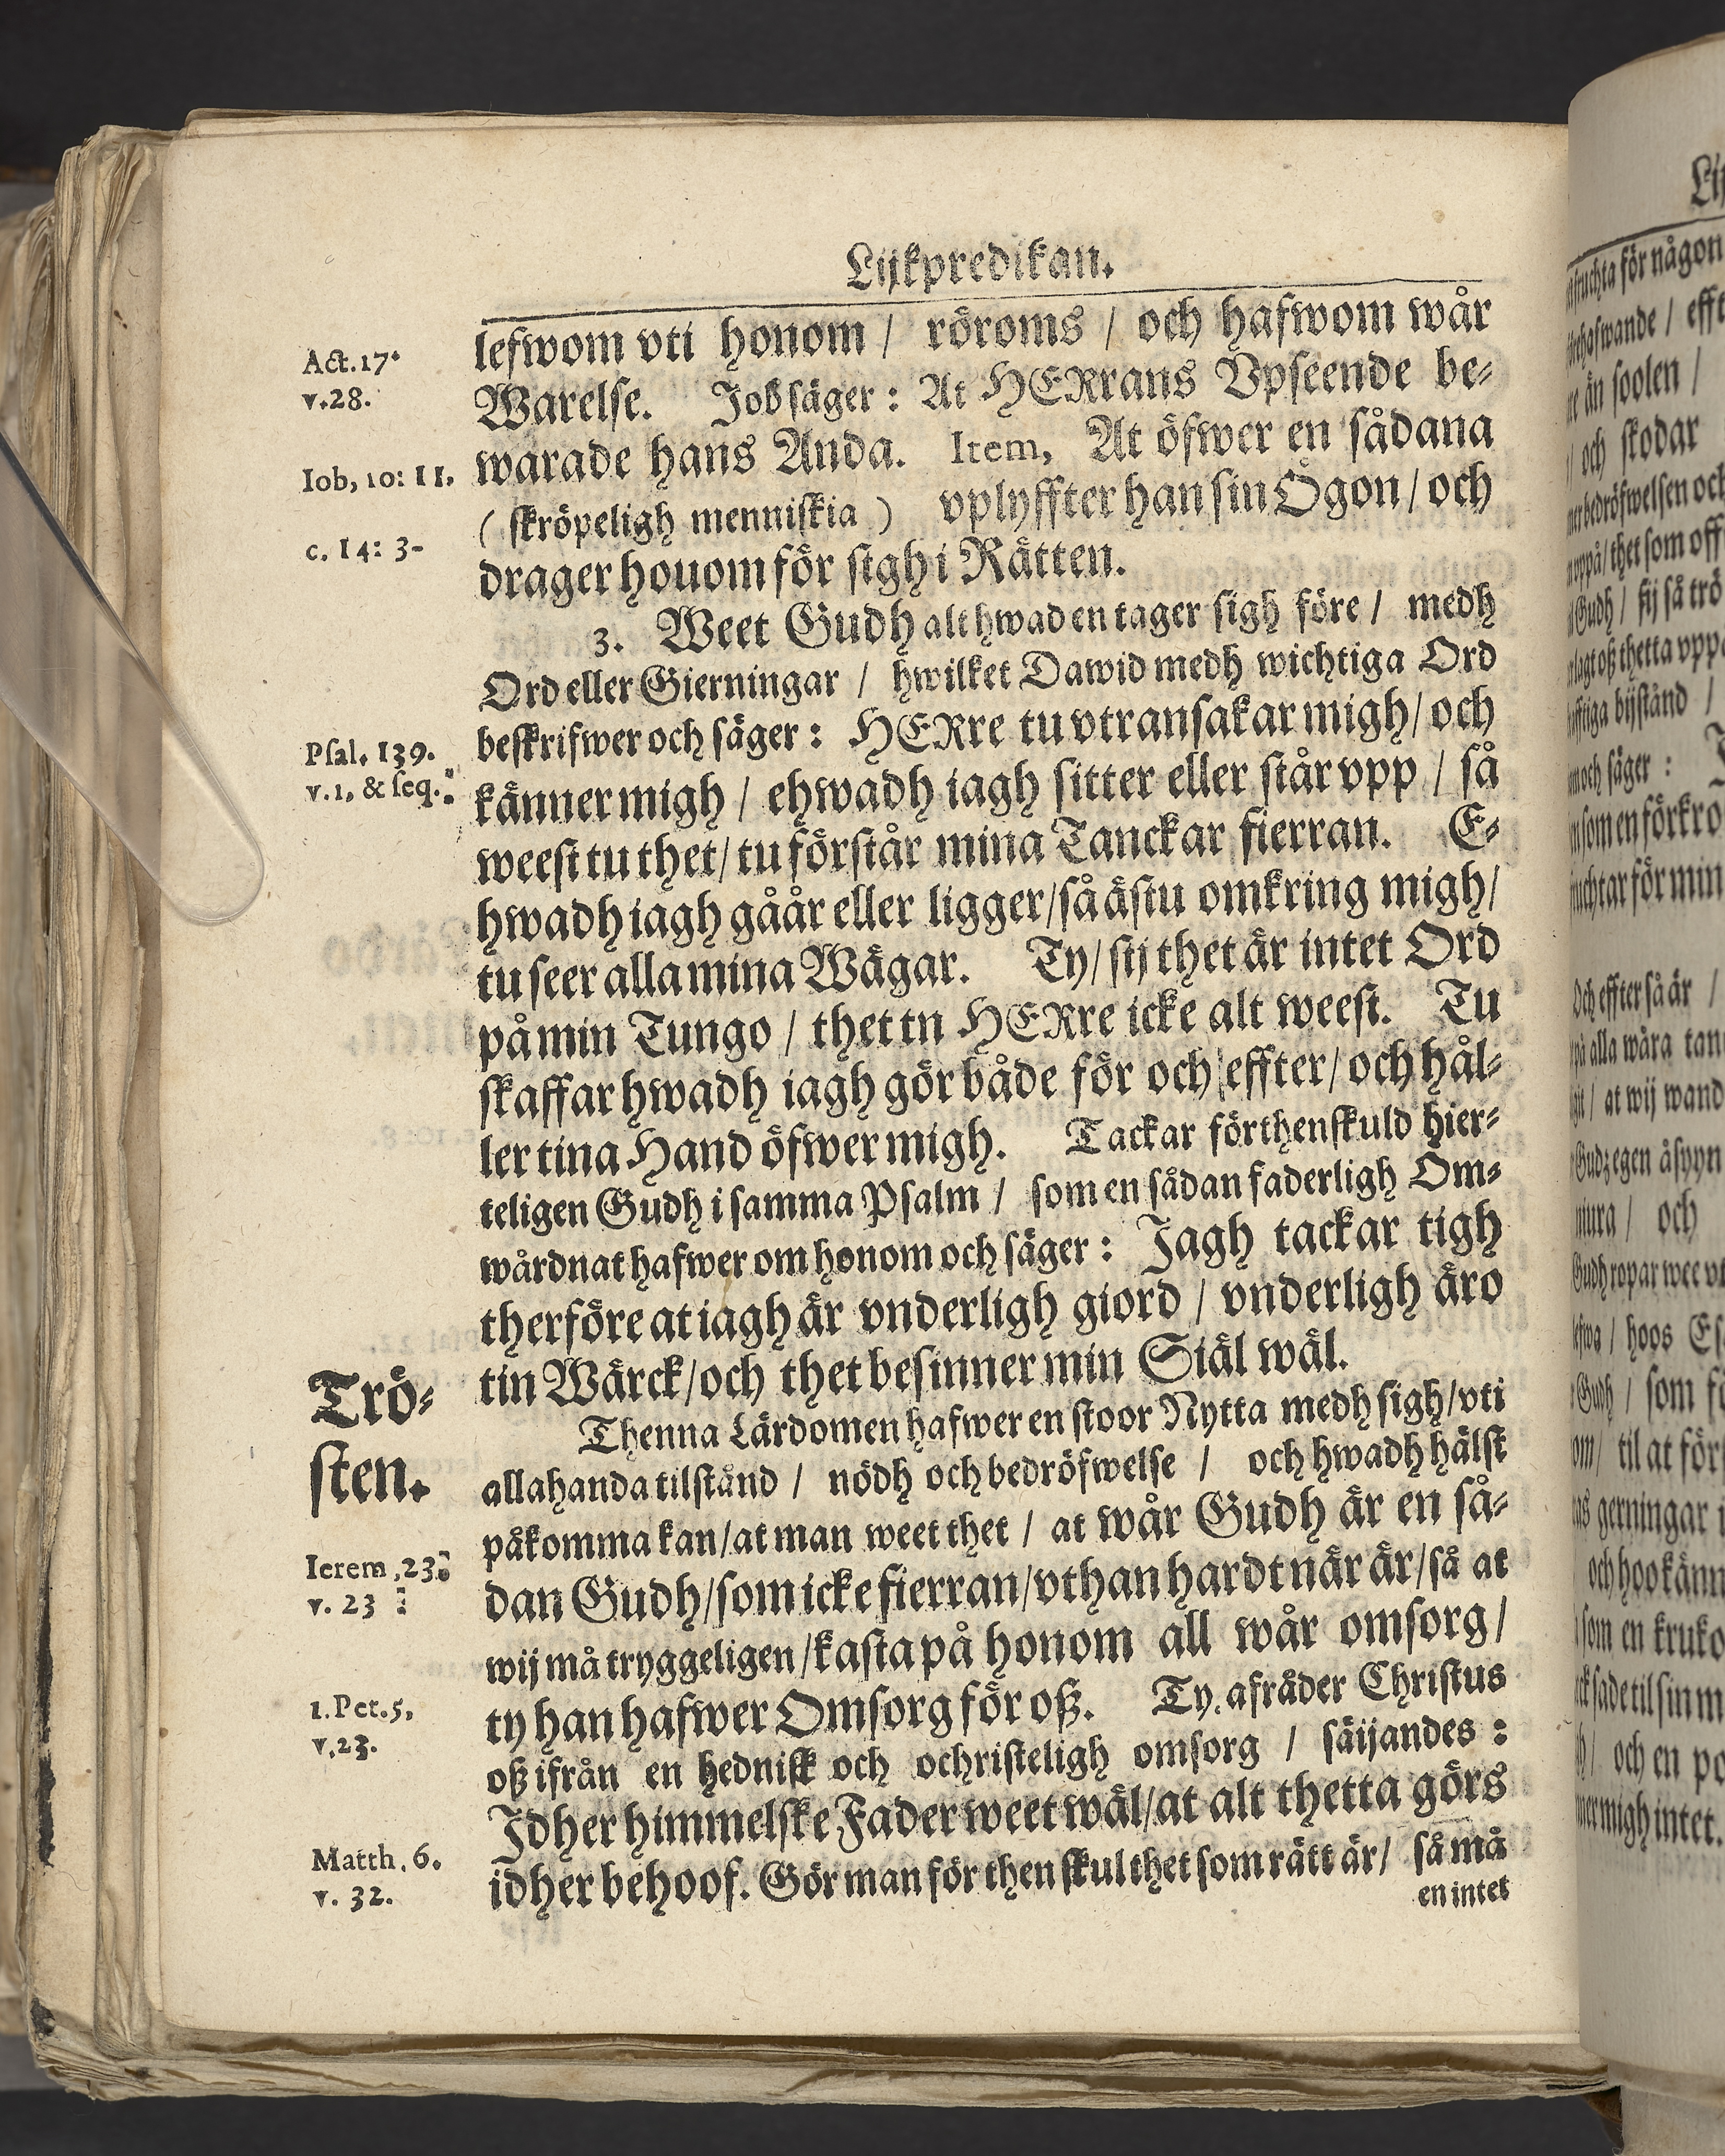 Lijkpredikan.
Act. 17.
v. 28.
Iob, 10: 11.
c. 14: 3-
Psal. 139.
v. 1, & seq.
Trö-
sten.
Ierem, 23.
v. 23
1. Pet. 5,
v, 23.
Matth. 6.
v. 32.
lefwom vti honom / röroms / och hafwom wår
Warelse. Job säger: At HERrans Vpseende be-
warade hans Anda. Item, At öfwer en sådana
( skröpeligh menniskia ) vplyffter han sin Ögon / och
drager houom för sigh i Rätten.
3. Weet Gudh alt hwad en tager sigh före / medh
Ord eller Gierningar / hwilket Dawid medh wichtiga Ord
beskrifwer och säger: HERre tu vtransakar migh / och
känner migh / ehwadh iagh sitter eller står vpp / så
weest tu thet / tu förstår mina Tanckar fierran. E-
hwadh iagh gåår eller ligger / så ästu omkring migh /
tu seer alla mina Wägar. Ty / sij thet är intet Ord
på min Tungo / thet tn HERre icke alt weest. Tu
skaffar hwadh iagh gör både för och effter / och hål-
ler tina Hand öfwer migh. Tackar förthenskuld hier-
teligen Gudh i samma Psalm / som en sådan faderligh Om-
wårdnat hafwer om honom och säger: Jagh tackar tigh
therföre at iagh är vnderligh giord / vnderligh äro
tin Wärck / och thet besinner min Siäl wäl.
Thenna Lärdomen hafwer en stoor Nytta medh sigh / vti
allahanda tilstånd / nödh och bedröfwelse / och hwadh hälst
påkomma kan / at man weet thet / at wår Gudh är en så-
dan Gudh / som icke fierran / vthan hardt när är / så at
wij må tryggeligen / kasta på honom all wår omsorg /
ty han hafwer Omsorg för oß. Ty afråder Christus
oß ifrån en hednisk och ochristeligh omsorg / säijandes:
Jdher himmelske Fader weet wäl / at alt thetta görs
idher behoof. Gör man för then skul thet som rätt är / så må
en intet